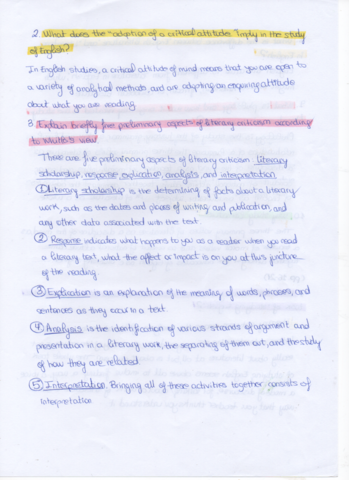 2. What does the adoption of a critical attitude Imply in the study
of English?
In English studies, a critical attitude of mind means that you are open to
a variety of analytical methods, and are adopting an enquiring attitude
about what you are reading.
3. Explain briefly five preliminary aspects of literary criticism according
to view
There are five preliminary aspects of literary criticism: Literary
scholarship, response, explication, analysis, and interpretation
① Literary scholarship is the determining of facts about a literary
work, such as the dates and places of writing and publication, and
any other data associated with the text.
② Response indicates what happens to you as a reader when you read
a literary text, what the effect or impact is on you at this juncture
of the reading.
③ Explication is an explanation of the meaning of words, phrases, and
sentences as they occur in a text.
④ Analysis is the identification of various strands of argument and
presentation in a literary work, the separating of them out, and the study
of how they are related.
⑤ Interpretation. Bringing all of these activities together consists of
interpretation